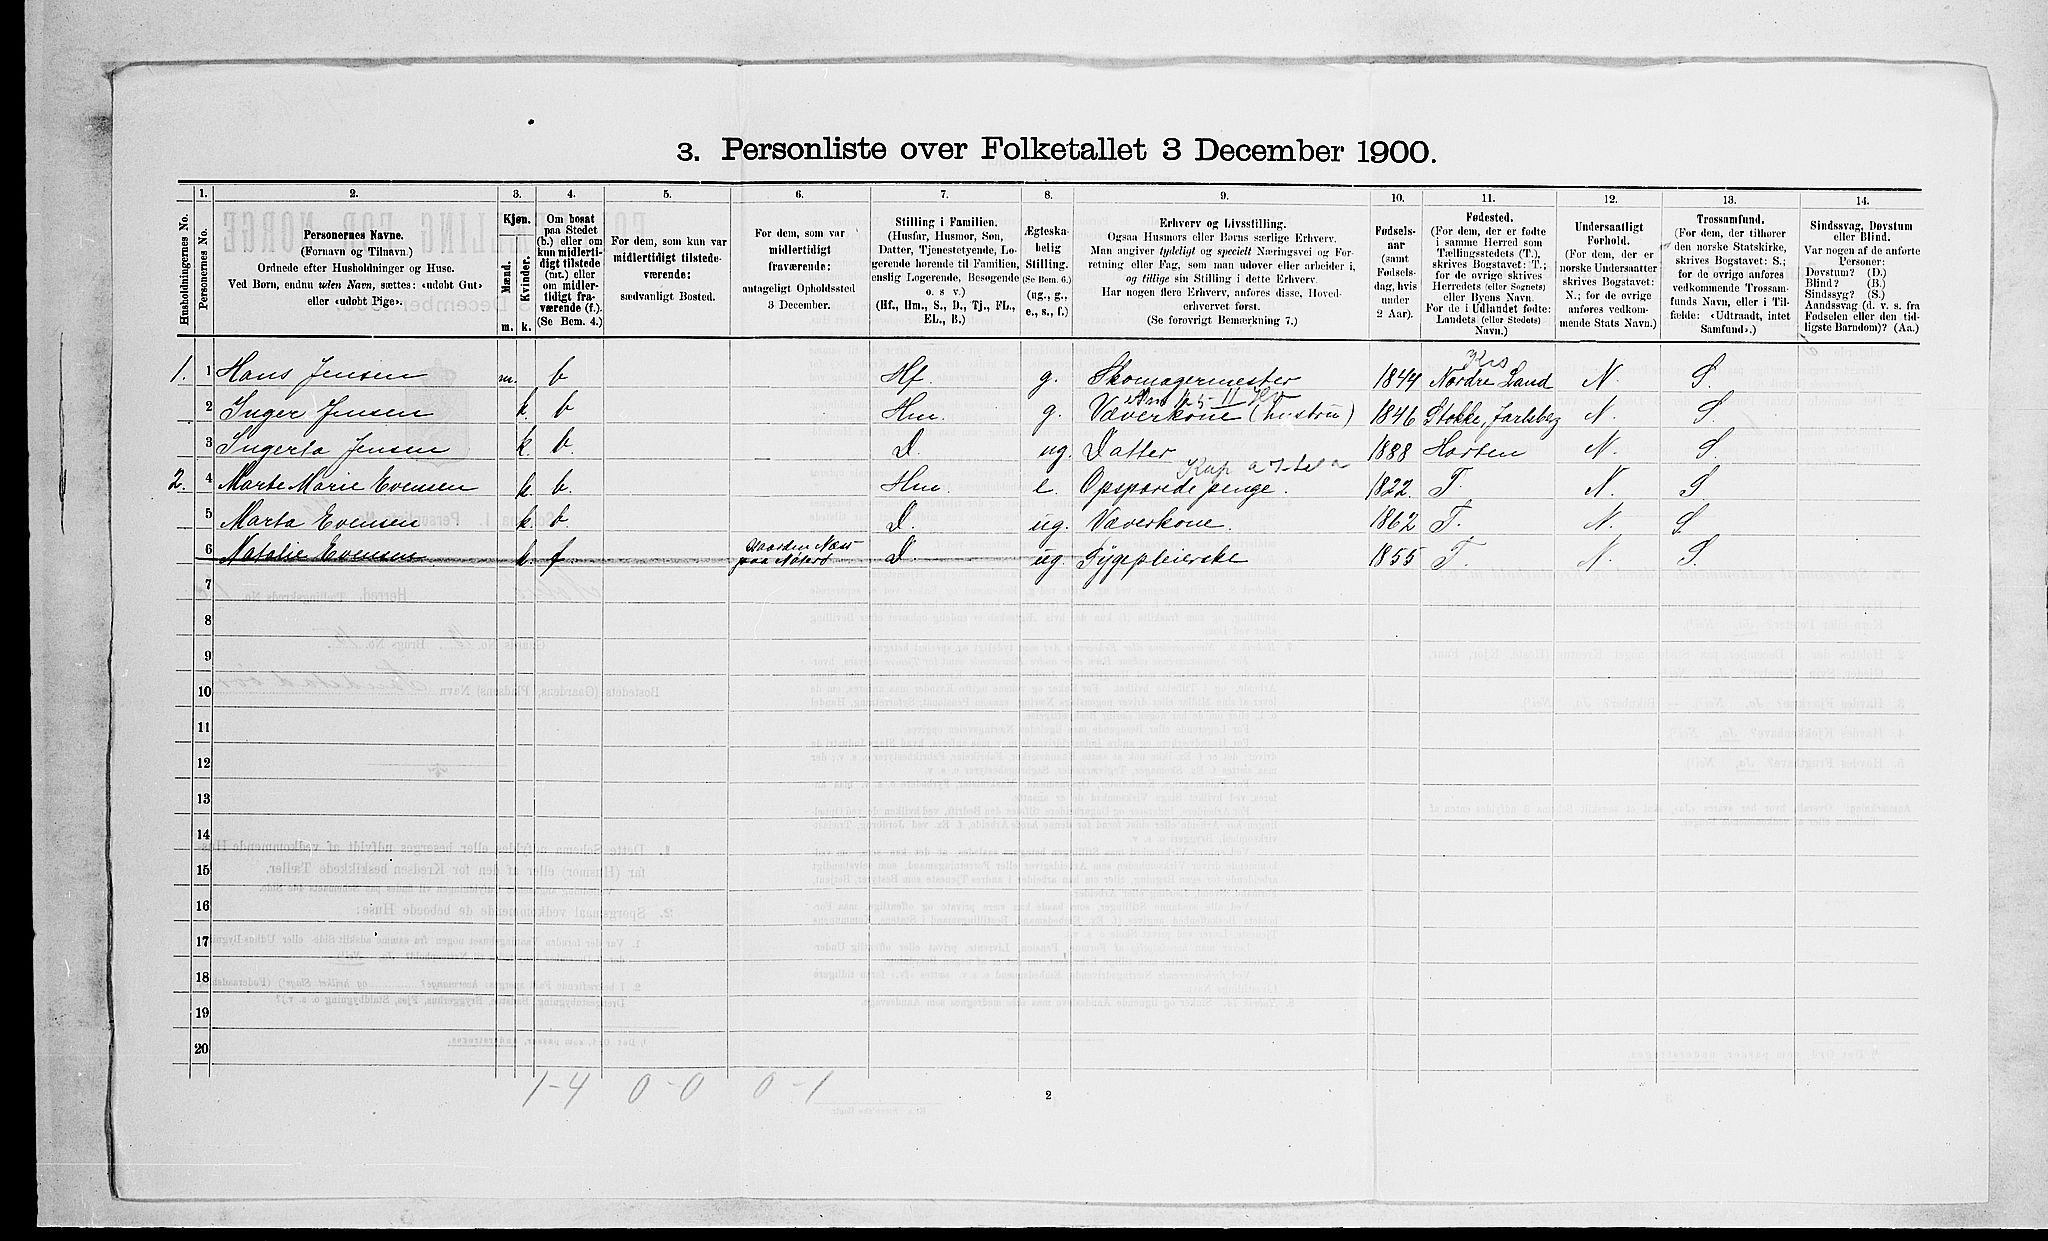 3. Personliste over Folketallet 3 December 1900.
1. 2. 3. 4. 5. 6. 7. 8. 9. 10. 11. 12. 13. 14.
Husholdningernes No.
Personernes No.
Personernes Navne.
(Fornavn og Tilnavn.)
Ordnede efter Husholdninger og Huse.
Ved Børn, endnu uden Navn, sættes: «udøbt Gut»
eller «udøbt Pige».
Kjøn.
Mænd.
Kvinder.
m. k.
Om bosat
paa Stedet
(b.) eller om
kun midlerti-
digt tilstede
(mt.) eller
om midler-
tidigt fra-
værende (f.).
(Se Bem. 4.)
For dem, som kun var
midlertidigt tilstede-
værende:
sædvanligt Bosted.
For dem, som var
midlertidigt
fraværende:
antageligt Opholdssted
3 December.
Stilling i Familien.
(Husfar, Husmor, Søn,
Datter, Tjenestetyende, Lo-
gerende hørende til Familien,
enslig Logerende, Besøgende
o. s. v.)
(Hf., Hm., S., D., Tj., FL.,
EL., B.)
Ægteska-
belig
Stilling.
(Se Bem. 6.)
(ug., g.,
e., s., f.)
Erhverv og Livsstilling.
Ogsaa Husmors eller Børns særlige Erhverv.
Man angiver tydeligt og specielt Næringsvei og For-
retning eller Fag, som man udøver eller arbeider i,
og tillige sin Stilling i dette Erhverv.
Har nogen flere Erhverv, anføres disse, Hoved-
erhvervet først.
(Se forøvrigt Bemærkning 7.)
Fødsels-
aar
(samt
Fødsels-
dag, hvis
under
2 Aar).
Fødested.
(For dem, der er fødte
i samme Herred som
Tællingsstedets (T.),
skrives Bogstavet: T.;
for de øvrige skrives
Herredets (eller Sognets)
eller Byens Navn.
For de i Udlandet fødte:
Landets (eller Stedets)
Navn.)
Undersaatligt
Forhold.
(For dem, der er
norske Undersaatter
skrives Bogstavet:
N.; for de øvrige
anføres vedkom-
mende Stats Navn.)
Trossamfund.
(For dem, der tilhører
den norske Statskirke,
skrives Bogstavet: S.;
for de øvrige anføres
vedkommende Trossam-
funds Navn, eller i Til-
fælde: «Udtraadt, intet
Samfund».)
Sindssvag, Døvstum
eller Blind.
Var nogen af de anførte
Personer:
Døvstum? (D.)
Blind? (B.)
Sindssyg? (S.)
Aandssvag (d. v. s. fra
Fødselen eller den tid-
ligste Barndom)? (Aa.)
1. 1 Hans Jensen m. b Hf. g. Skomagermester 1844 Nordre Land N. S.
2 Inger Jensen k. b Hm. g. Væverkone (hustru) 1846 Stokke, Jarlsberg N. S.
3 Ingerta Jensen k. b. D. ug. Datter 1888 Horten N. S.
2. 4 Marte Marie Evensen k. b. Hm. e. Opsparede penge. 1822. T. N. S
5 Marta Evensen k. b. D. ug. Væverkone. 1862 T. N. S.
6 Natalie Evensen k. f. Gaarden Næss paa Nøterø D ug. Sygepleierske 1855 T. N. S.
7
8
9
10
11
12
13
14
15
16
17
18
19
20
1-4 0-0 0-1
2